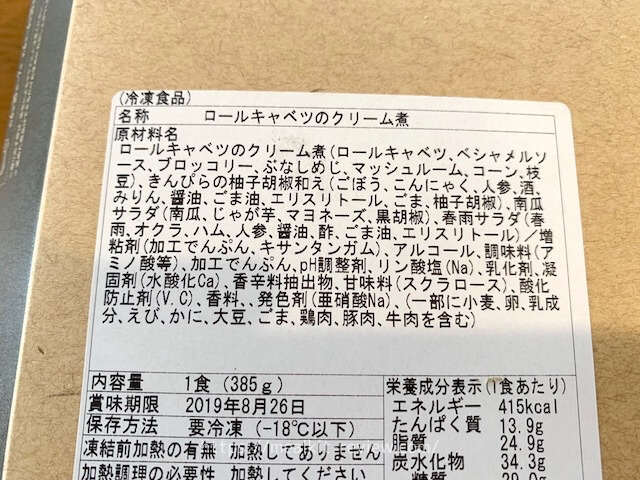 (冷凍食品)
名称 ロールキャベツのクリーム煮
原材料名
ロールキャベツのクリーム煮(ロールキャベツ、ベシャメルソ
ース、ブロッコリー、ぶなしめじ、マッシュルーム、コーン、枝
豆)、きんぴらの柚子胡椒和え(ごぼう、こんにゃく、人参、酒、
みりん、醤油、ごま油、エリスリトール、ごま、柚子胡椒)、南瓜
サラダ(南瓜、じゃが芋、マヨネーズ、黒胡椒)、春雨サラダ(春
雨、オクラ、ハム、人参、醤油、酢、ごま油、エリスリトール)/増
粘剤(加工でんぷん、キサンタンガム)、アルコール、調味料(ア
ミノ酸等)、加工でんぷん、pH調整剤、リン酸塩(Na)、乳化剤、凝
固剤(水酸化Ca)、香辛料抽出物、甘味料(スクラロース)、酸化
防止剤(V.C)、香料、、発色剤(亜硝酸Na)、(一部に小麦、卵、乳成
分、えび、かに、大豆、ごま、鶏肉、豚肉、牛肉を含む)
内容量 1食(385g)
賞味期限 2019年8月26日
保存方法 要冷凍(-18℃以下)
凍結前加熱の有無 加熱してありません
加熱調理の必要性 加熱してください
栄養成分表示(1食あたり)
エネルギー 415kcal
たんぱく質 13.9g
脂質 24.9g
炭水化物 34.3g
糖質 29.0g